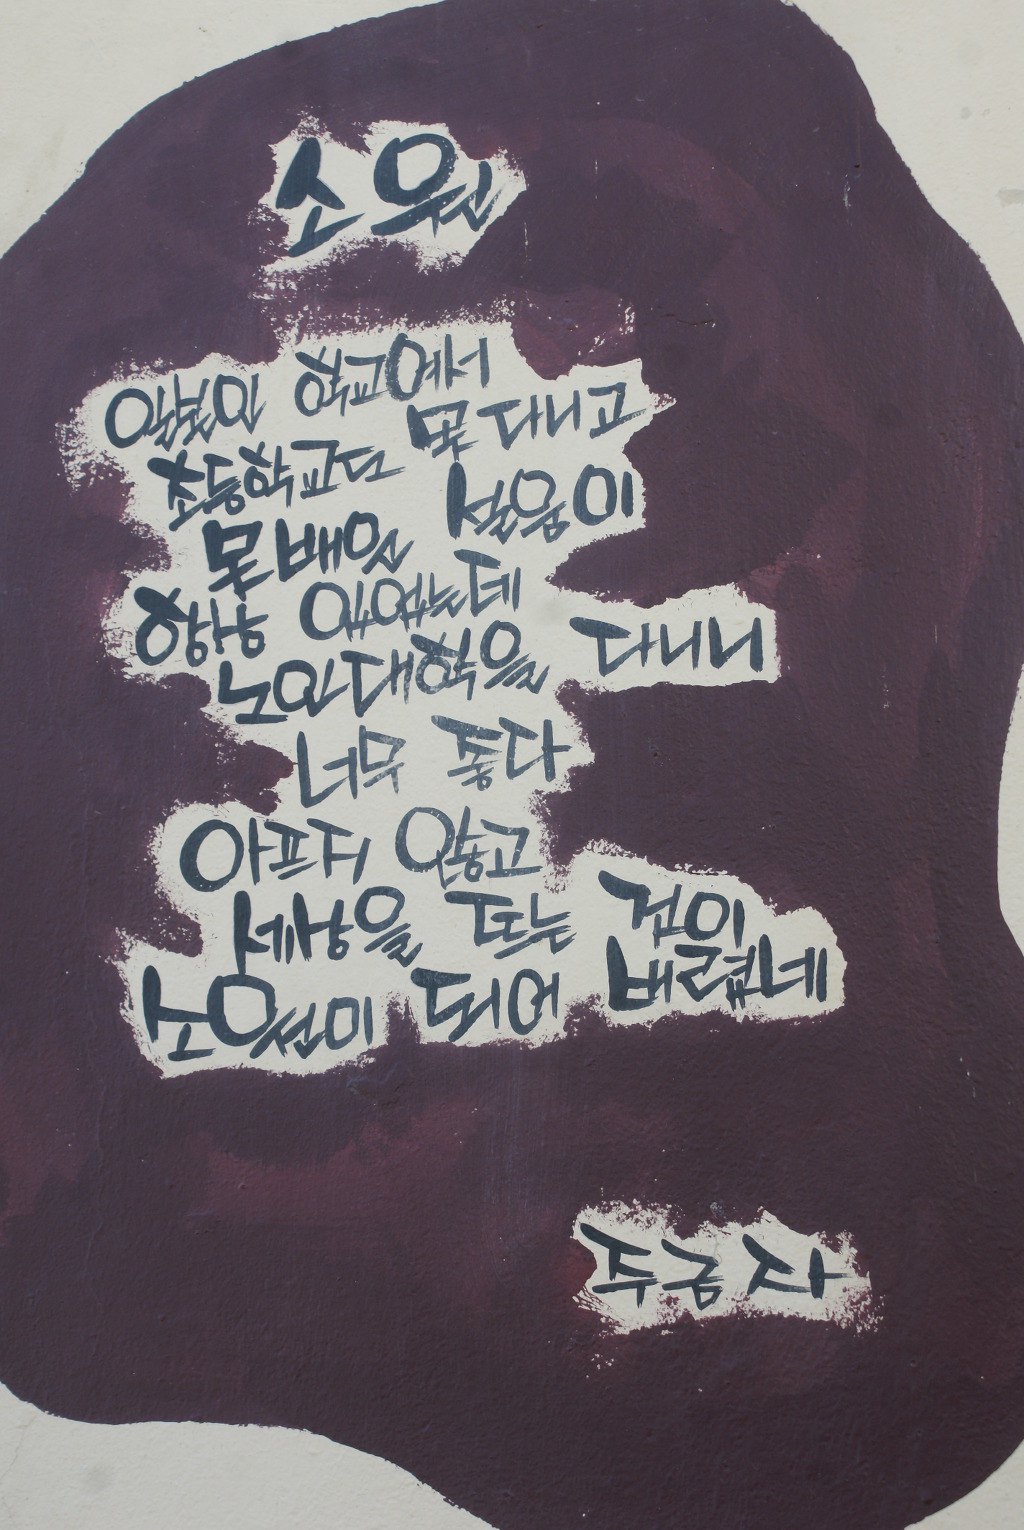 소원
일본인 학교에서
초등학교도 못 다니고
못 배운 설움이
항상 있었는데
노인대학을 다니니
너무 좋다
아프지 않고
세상을 뜨는 것이
소원이 되어 버렸네
주금자